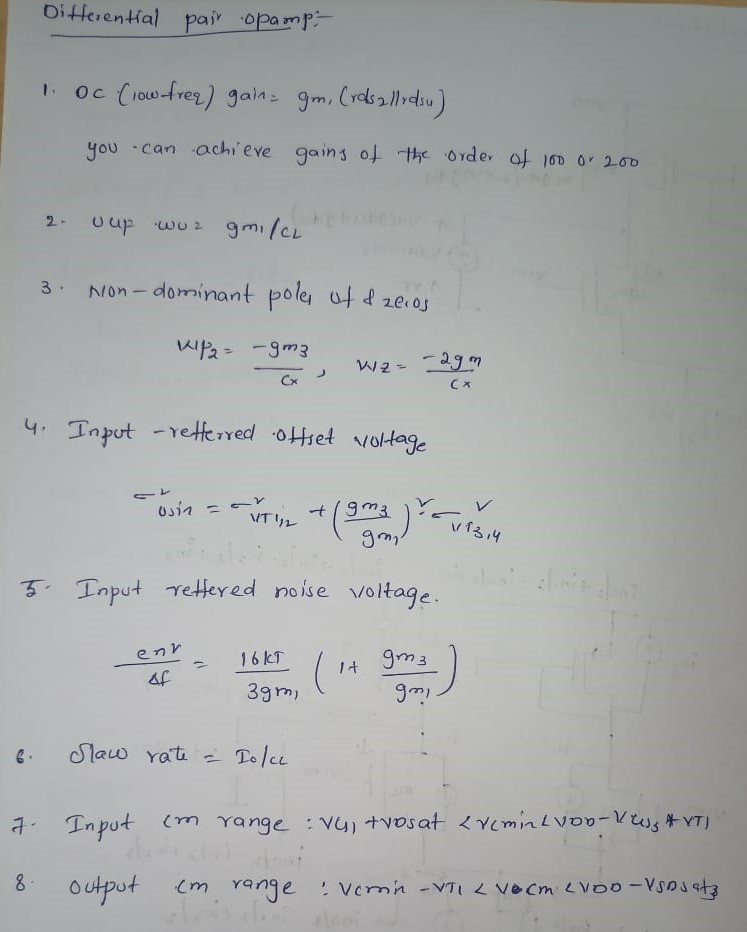 Differential pair opamp:-
1. OC (low freq) gain = gm1 (rds2||rds4)
you can achieve gains of the order of 100 or 200
2. UUP wu = gm1/CL
3. Non-dominant poles of & zeros
Wp2 = -gm3/Cx, Wz = -2gm/Cx
4. Input -refferred offset voltage
σ²osin = σ²VT1,2 + (gm3/gm1)² · σ²VT3,4
5. Input reffered noise voltage.
en²/Δf = 16KT/3gm1 (1+ gm3/gm1)
6. Slaw rate = Io/CL
7. Input cm range : VG1 + VDsat < Vcmin < VDD - VGS3 + VT1
8. output cm range : Vcmin - VT1 < Vocm < VDD - VSDsat3